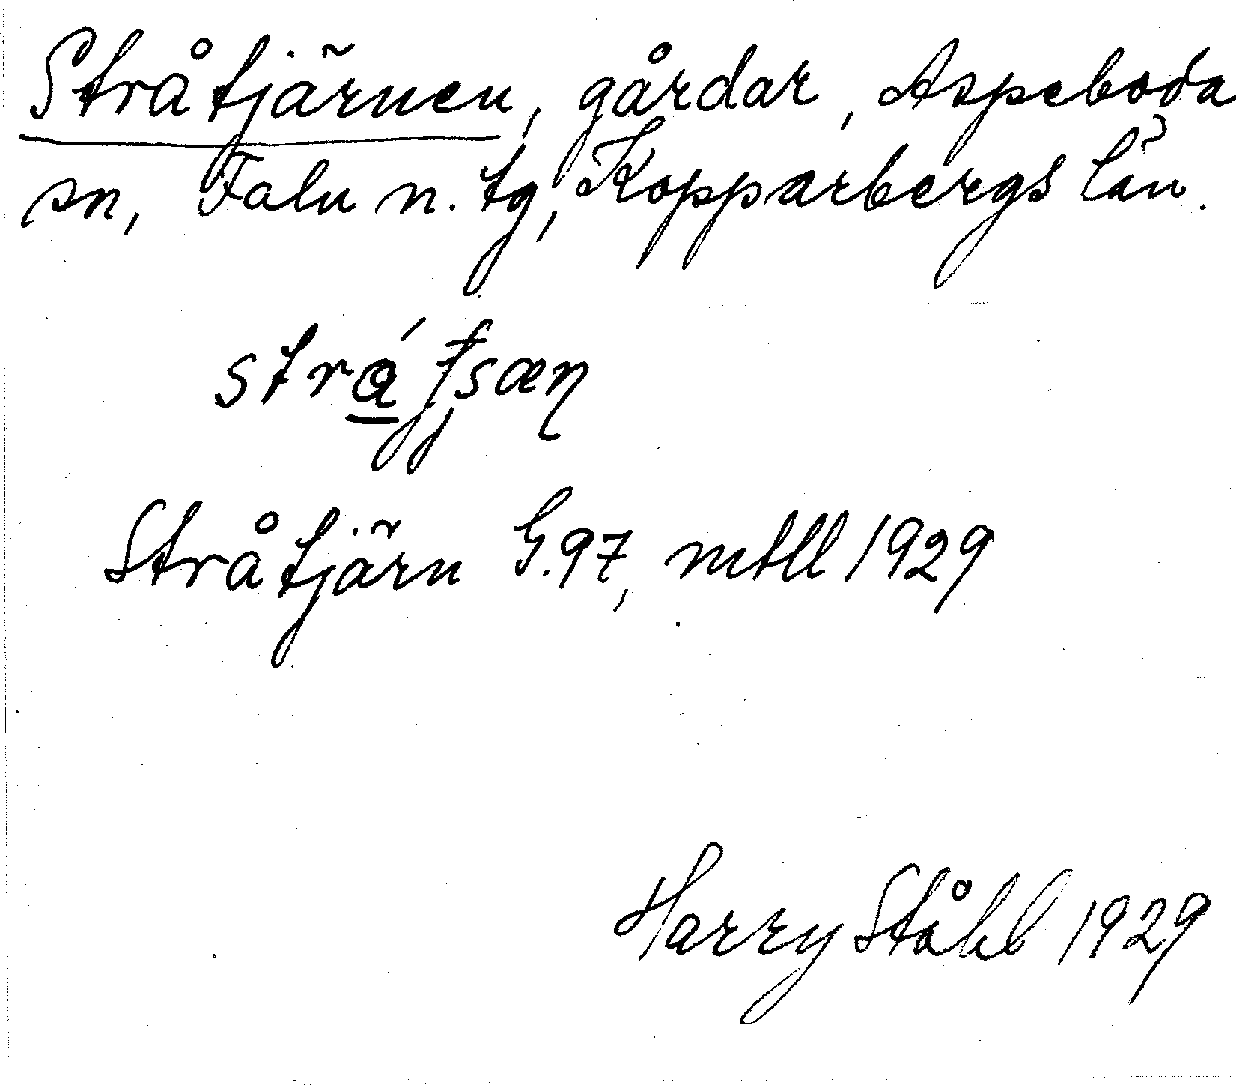 Stråtjärnen, gårdar, Aspeboda
sn, Falu n. tg, Kopparbergs län.
Stråtjärn G.97, mtll 1929
Harry Ståhl 1929